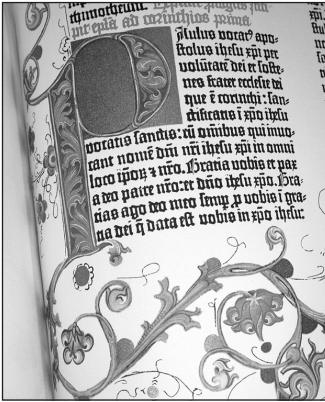 thimotheum.
pit epl̃a ad corinthios prima.
Paulus vocatꝰ apo-
stolus ihesu xp̄i per
volūtatē dei et soste-
nes frater ecclesie dei
que ē corinthi: san-
ctificatis ī xp̄o ihesu
vocatis sanctis: cū om̄ibus qui invo-
cant nomē dn̄i nr̄i ihesu xp̄i in omni
loco ip̄oꝝ ⁊ nr̄o. Gratia vobis et pax
a deo patre nr̄o: et dn̄o ihesu xp̄o. Gra-
tias ago deo meo semꝑ ꝓ vobis ī gra-
tia dei q̄ data est vobis in xp̄o ihesu: